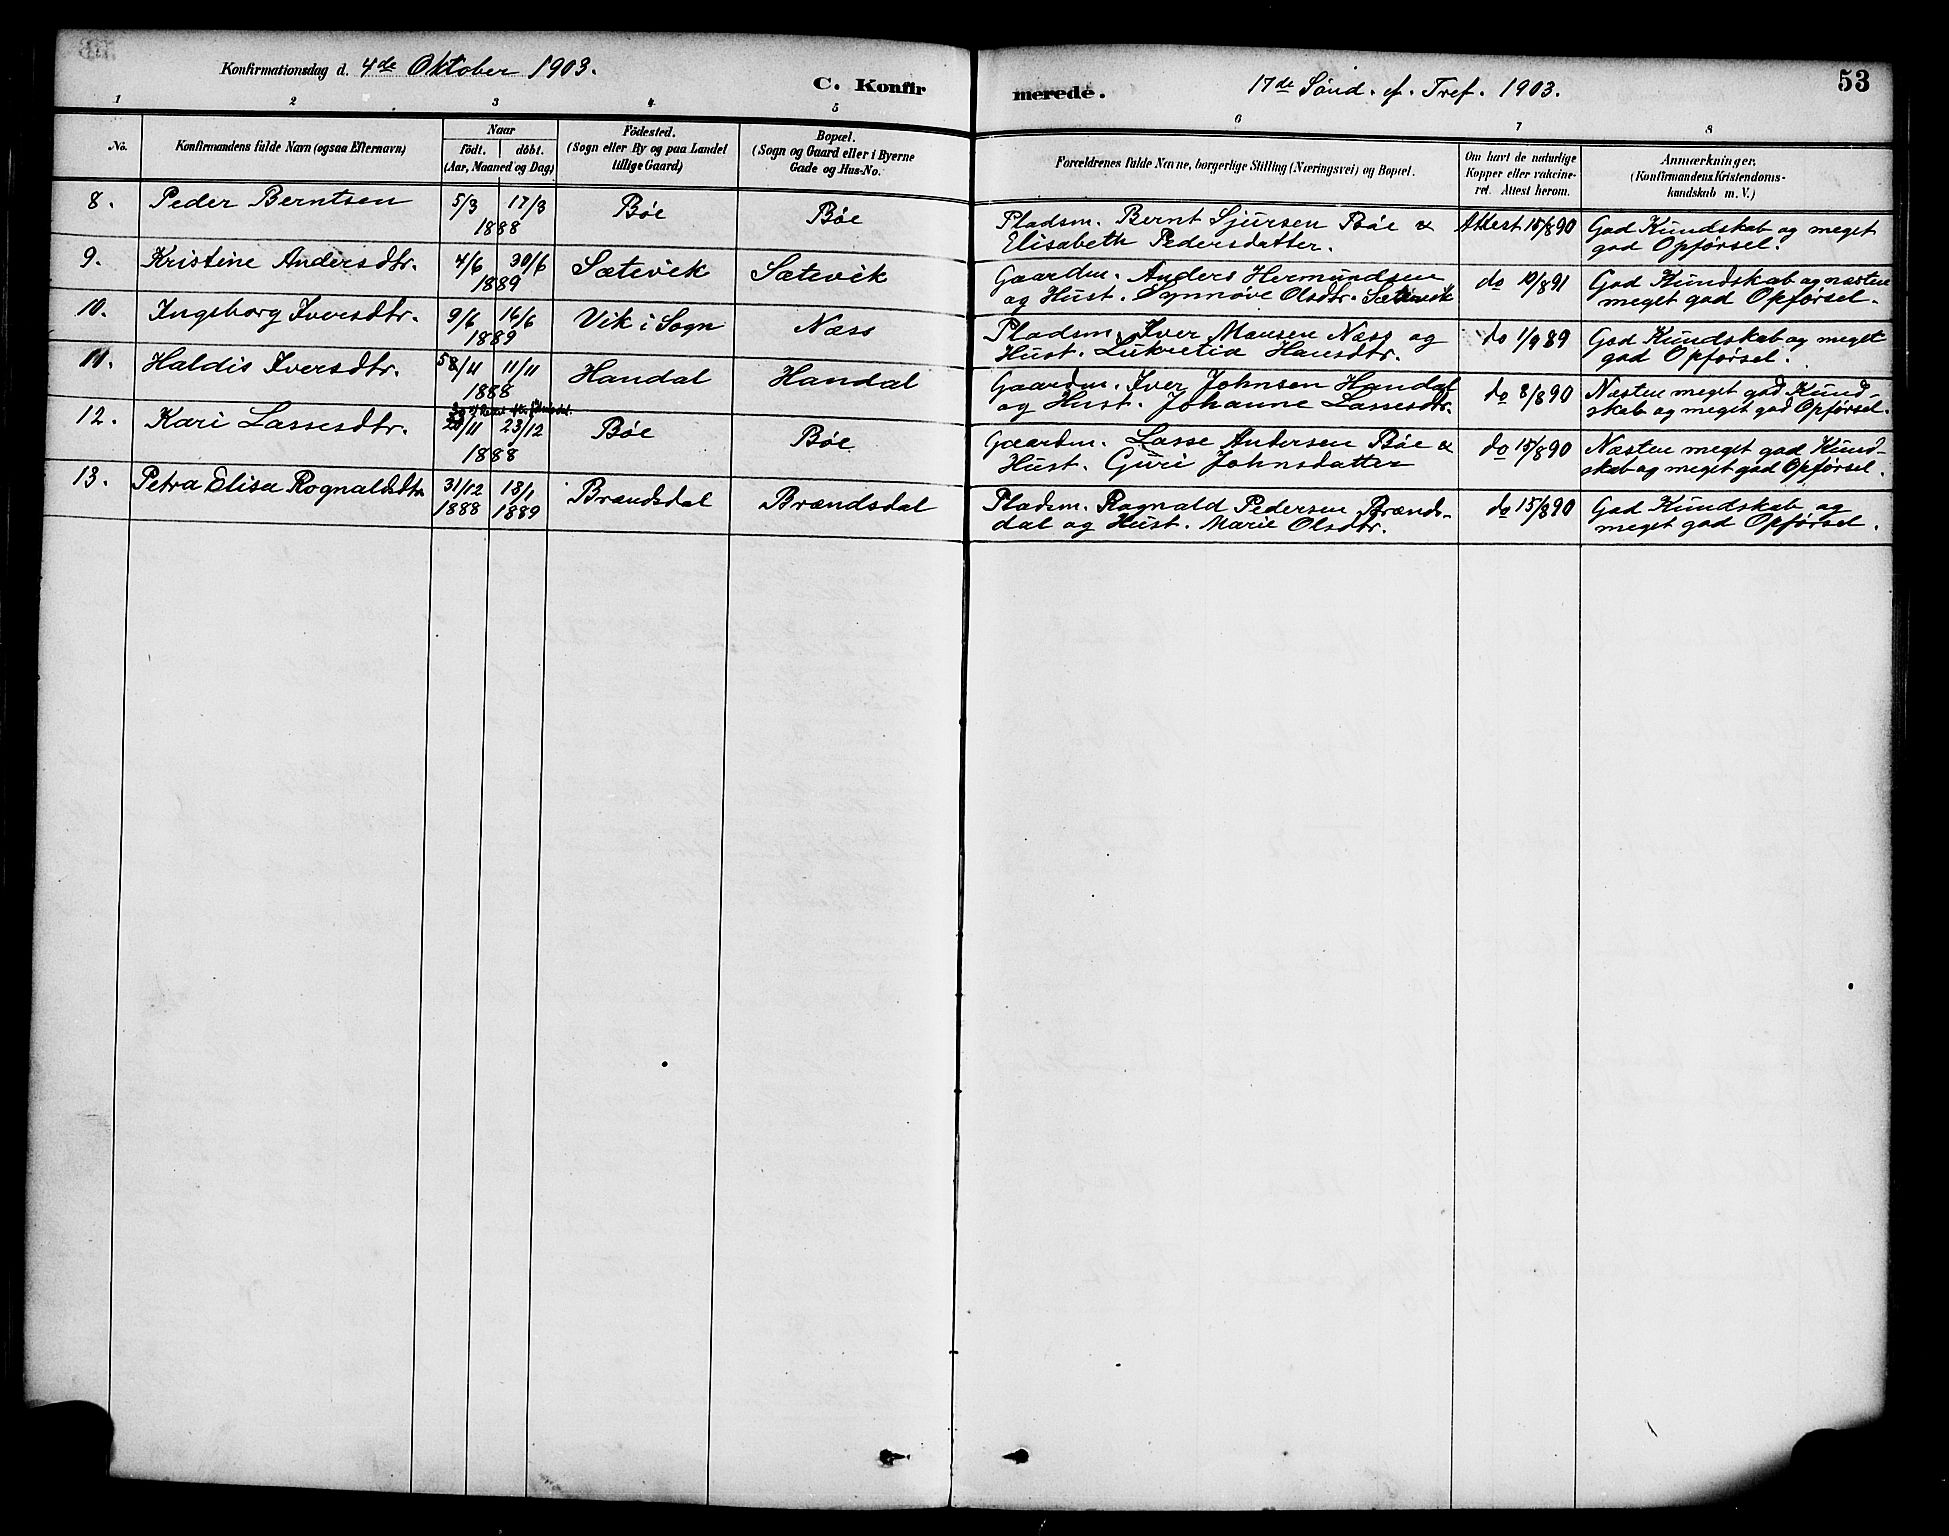 Konfirmationsdag d. 4de Oktober 1903.
C. Konfirmerede.
17de Sönd. ef. Tref. 1903.
53
1 2 3 4 5 6 7 8
No.
Konfirmandens fulde Navn (ogsaa Efternavn)
Naar
födt. döbt.
(Aar, Maaned og Dag)
Födested.
(Sogn eller By og paa Landet
tillige Gaard)
Bopæl.
(Sogn og Gaard eller i Byerne
Gade og Hus-No.
Forældrenes fulde Navne, borgerlige Stilling (Næringsvei) og Bopæl.
Om havt de naturlige
Kopper eller vakcine-
ret. Attest herom.
Anmærkninger,
(Konfirmandens Kristendoms-
kundskab m. V.)
8. Peder Berntsen 5/3 17/3 1888 Böe Böe
Pladsm. Bernt Sjursen Böe &
Elisabeth Pedersdatter.
Attest 15/8 90
God Kundskab og meget
god Opførsel.
9. Kristine Andersdtr. 4/6 30/6 1889 Sætevik Sætevik
Gaardm. Anders Hermundsen
og Hust. Synnøve Olsdtr. Sætevik
do 10/8 91
God Kundskab og næsten
meget god Opførsel.
10. Ingeborg Iversdtr. 9/6 16/6 1889 Vik i Sogn Næss
Pladsm. Iver Monsen Næss og
Hust. Lukretia Hansdtr.
do 1/9 89
God Kundskab og meget
god Opførsel.
11. Haldis Iversdtr. /11 11/11 1888 Handal Handal
Gaardm. Iver Johnsen Handal
og Hust. Johanne Lassesdtr.
do 8/8 90
Næsten meget god Kund-
skab og meget god Opførsel.
12. Kari Lassesdtr. /11 23/12 1888 Böe Böe
Gaardm. Lasse Andersen Böe &
Hust. Guri Johnsdatter
do 15/8 90
Næsten meget god Kund-
skab og meget god Opførsel.
13. Petra Elisa Rognaldsdtr 31/12 1888 13/1 1889 Brændsdal Brændsdal
Pladsm. Rognald Pedersen Brænds-
dal og Hust. Marie Olsdtr.
do 15/8 90
God Kundskab og
meget god Opførsel.